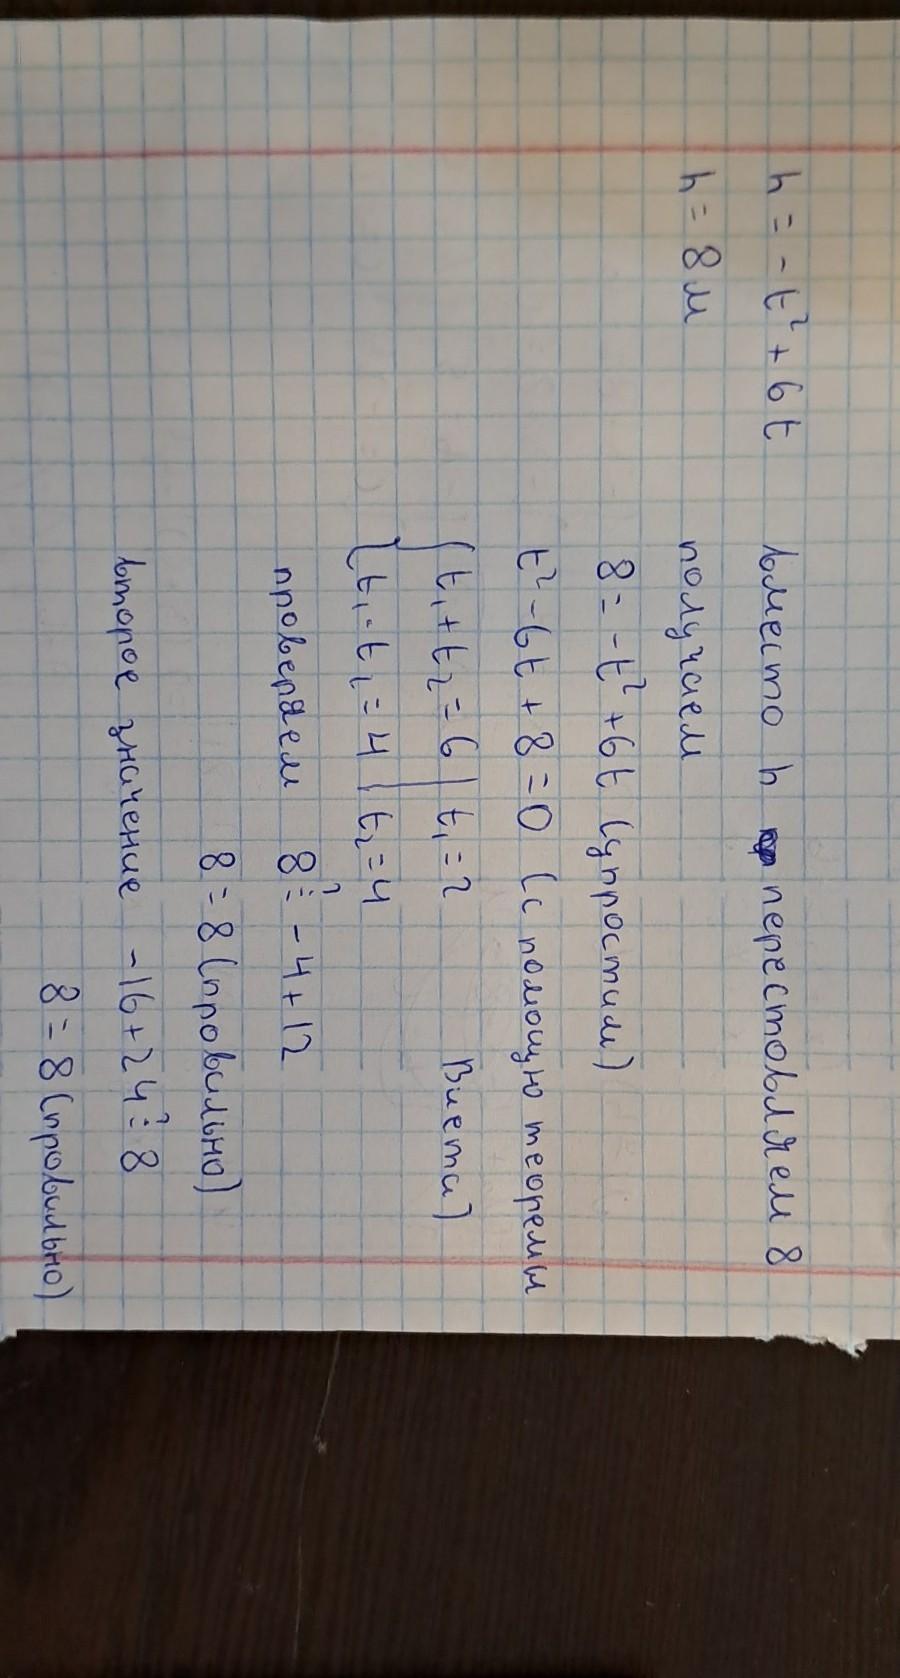 h = - t² + 6t вместо h перестовляем 8
h = 8м получаем
8 = - t² + 6t (упростим)
t² - 6t + 8 = 0 (с помощю теоремы
{ t₁ + t₂ = 6 | t₁ = 2 Виета)
{ t₁ · t₂ = 4 | t₂ = 4
проверяем 8 ≟ - 4 + 12
8 = 8 (провильно)
второе значение - 16 + 24 ≟ 8
8 = 8 (провильно)